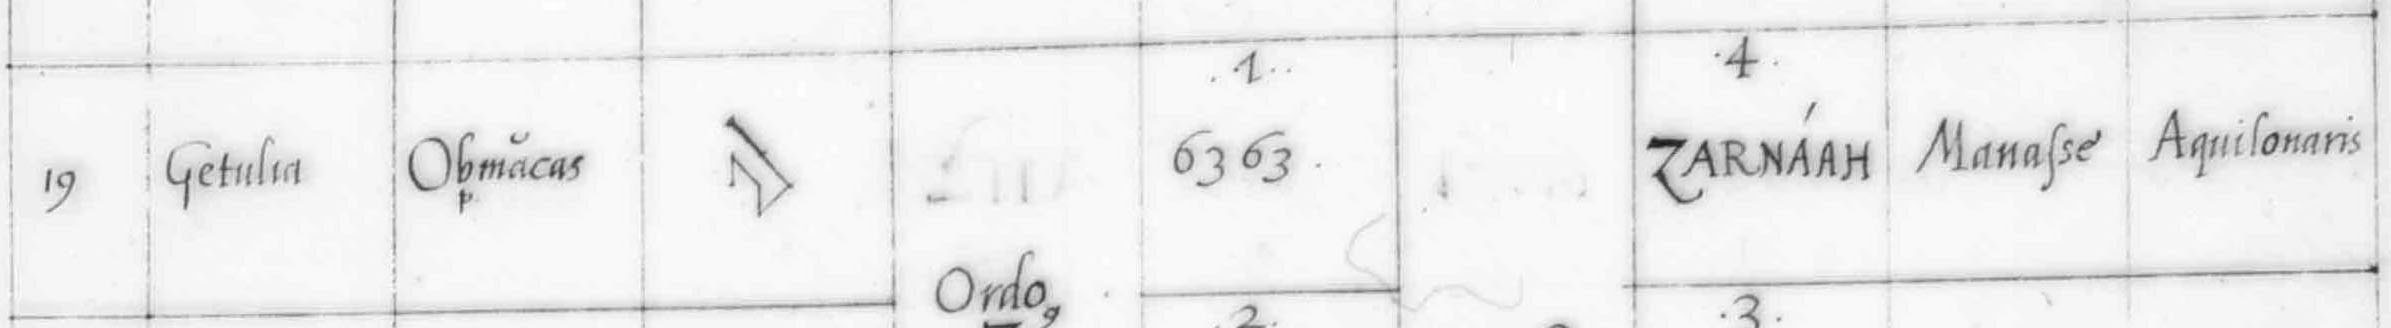 .1..
.4.
19 Getulia Obmăcas 6363. ZARNÁAH Manaſse Aquilonaris
p.
Ordo,
.2.
.3.